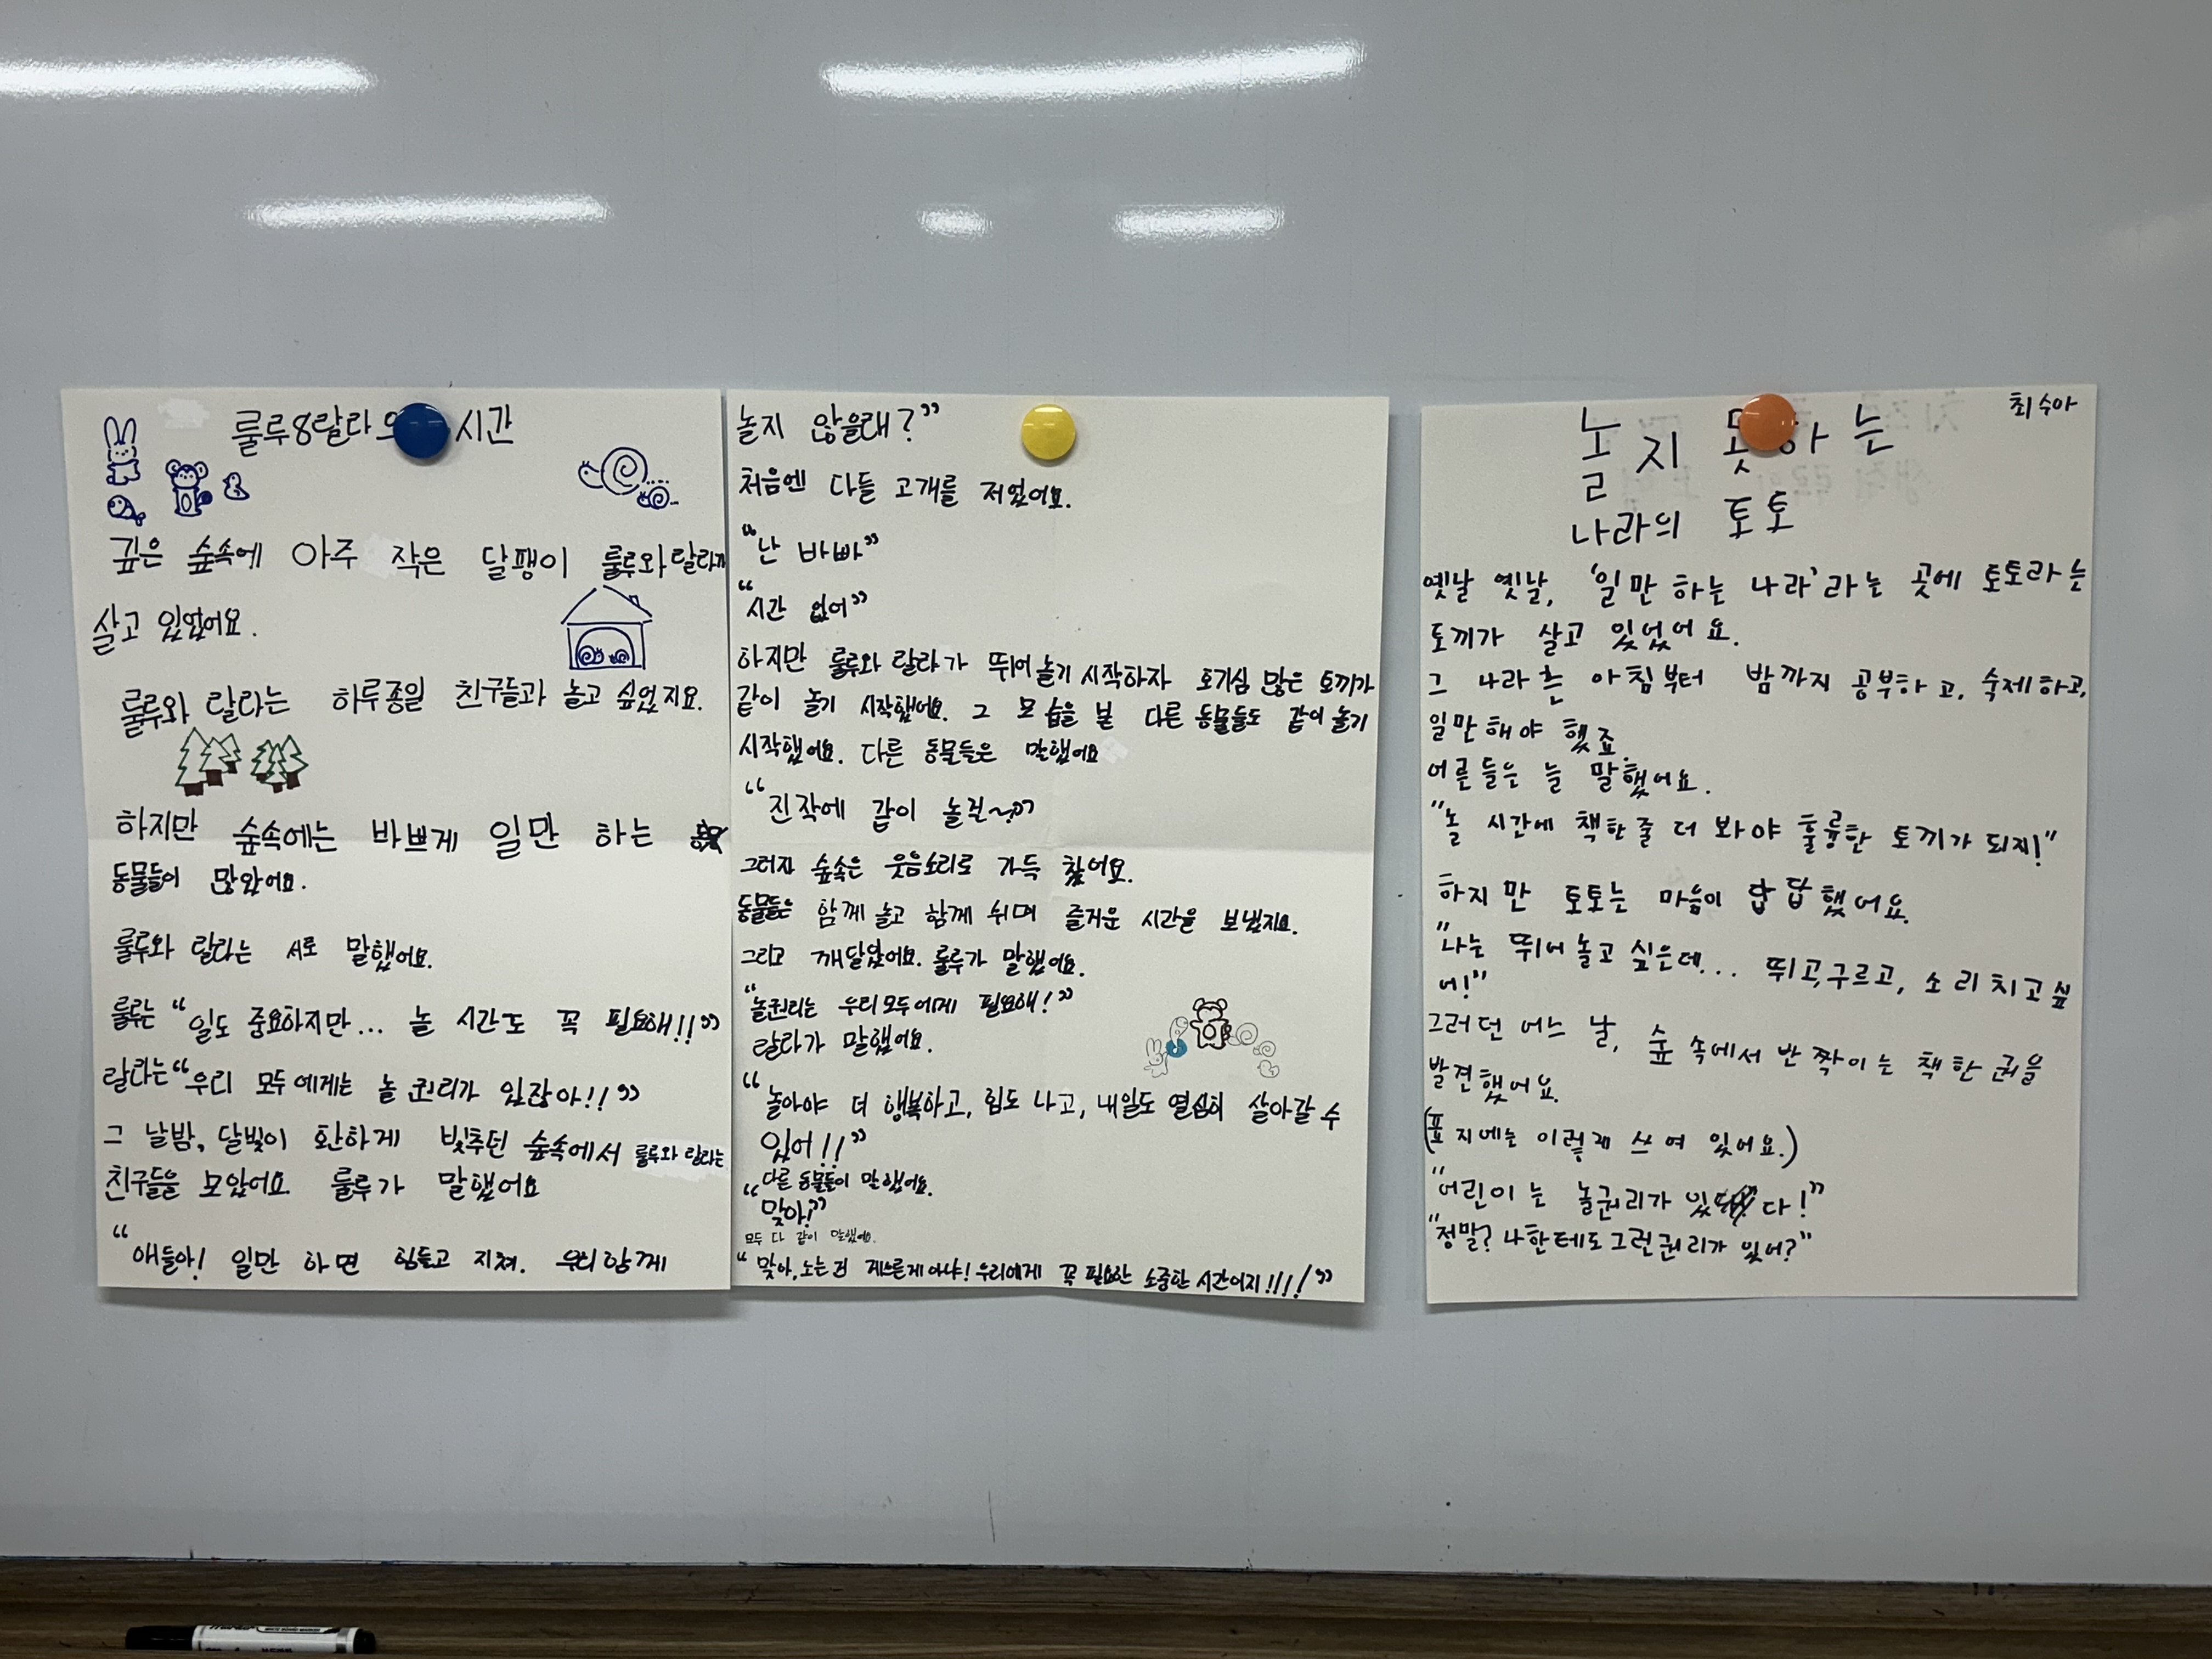 룰루&랄라 시간
깊은 숲속에 아주 작은 달팽이 룰루와랄라가
살고 있었어요.
룰루와 랄라는 하루종일 친구들과 놀고 싶었지요.
하지만 숲속에는 바쁘게 일만 하는
동물들이 많았어요.
룰루와 랄라는 서로 말했어요.
룰루는 “일도 중요하지만... 놀 시간도 꼭 필요해!!”
랄라는“우리 모두에게는 놀 권리가 있잖아!!”
그 날밤, 달빛이 환하게 빛추던 숲속에서 룰루와 랄라는
친구들을 모았어요 룰루가 말했어요
“얘들아! 일만 하면 힘들고 지쳐. 우리 함께
놀지 않을래?”
처음엔 다들 고개를 저었어요.
“난 바빠”
“시간 없어”
하지만 룰루와 랄라가 뛰어놀기 시작하자 호기심 많은 토끼가
같이 놀기 시작했어요. 그 모습을 본 다른 동물들도 같이 놀기
시작했어요. 다른 동물들은 말했어요
“진작에 같이 놀걸~”
그러자 숲속은 웃음소리로 가득 찼어요.
동물들은 함께 놀고 함께 쉬며 즐거운 시간을 보냈지요.
그리고 깨달았어요. 룰루가 말했어요.
“놀권리는 우리모두에게 필요해!”
랄라가 말했어요.
“놀아야 더 행복하고, 힘도 나고, 내일도 열심히 살아갈 수
있어!!”
다른 동물들이 말했어요.
“맞아!”
모두 다 같이 말했어요.
“맞아, 노는 건 게으른게 아냐! 우리에게 꼭 필요한 소중한 시간이지!!!!”
최수아
놀지 못하는
나라의 토토
옛날 옛날, ‘일만 하는 나라’라는 곳에 토토라는
토끼가 살고 있었어요.
그 나라는 아침부터 밤까지 공부하고, 숙제하고,
일만해야 했죠.
어른들은 늘 말했어요.
“놀 시간에 책한줄 더 봐야 훌륭한 토끼가 되지!”
하지만 토토는 마음이 답답했어요.
“나는 뛰어놀고 싶은데... 뛰고,구르고, 소리치고싶
어!”
그러던 어느 날, 숲 속에서 반짝이는 책 한 권을
발견했어요.
(표지에는 이렇게 쓰여 있어요.)
“어린이는 놀권리가 있다!”
“정말? 나한테도그런권리가 있어?”